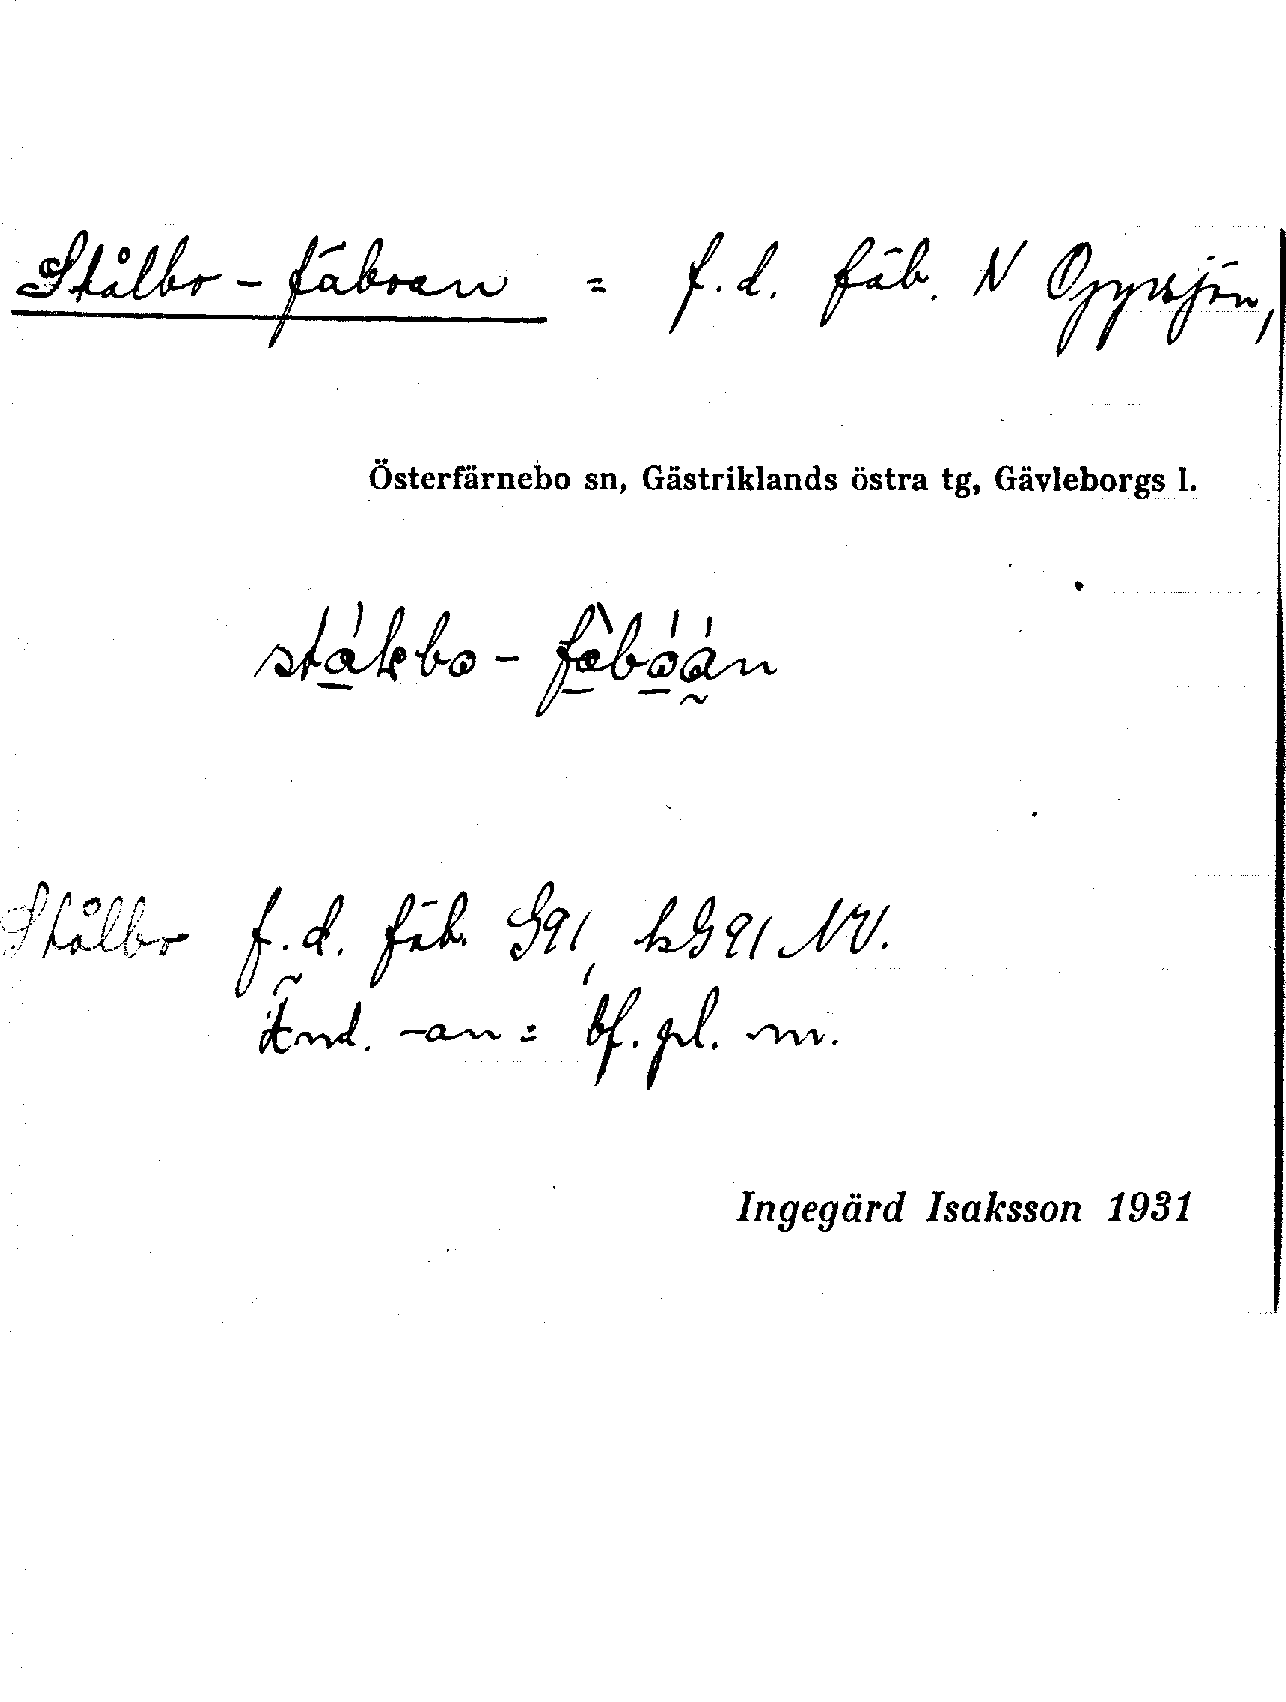 Stålbo-fäboan = f.d. fäb. N Oppsjön,
Österfärnebo sn, Gästriklands östra tg, Gävleborgs l.
Stålbo f.d. fäb. G91, kG91 NV.
Änd. -an = bf. pl. m.
Ingegärd Isaksson 1931